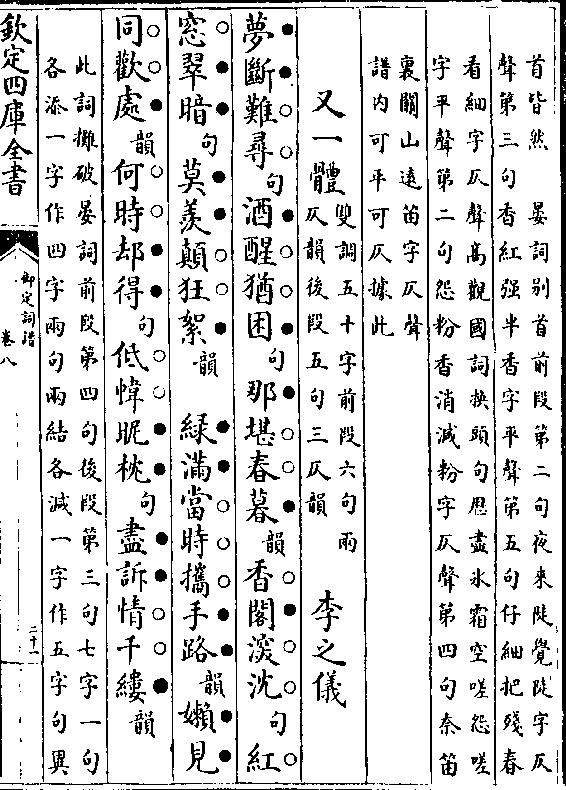 首皆然　晏詞别首前段第二句夜來陡覺陡字仄
聲第三句香紅强半香字平聲第五句仔細把殘春
看細字仄聲髙觀國詞换頭句厯盡氷霜空嗟怨嗟
字平聲第二句怨粉香消減粉字仄聲第四句秦笛
裏關山逺笛字仄聲
譜内可平可仄據此
又一體 雙調五十字前段六句兩
仄韻後段五句三仄韻 李之儀
夢斷難尋句酒醒猶困句那堪春暮韻香閣深沈句紅
窓翠暗句莫羨顛狂絮韻　緑滿當時攜手路韻嬾見
同歡處韻何時却得句低幃昵枕句盡訴情千縷韻
此詞攤破晏詞前段第四句後段第三句七字一句
各添一字作四字兩句兩結各減一字作五字句異
欽定四庫全書
御定詞譜
卷八
二十一